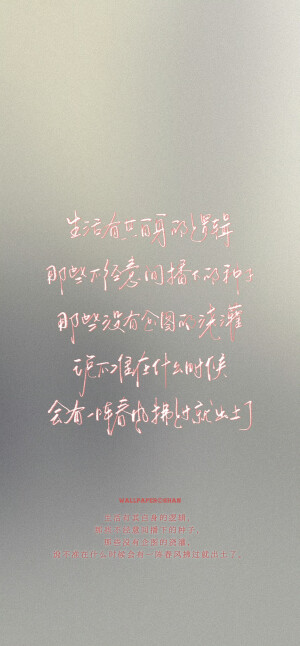 生活有其自身的逻辑
那些不经意间播下的种子
那些没有企图的浇灌
说不准在什么时候
会有一阵春风拂过就出土了
WALLPAPER©KHAN
生活有其自身的逻辑,
那些不经意间播下的种子,
那些没有企图的浇灌,
说不准在什么时候会有一阵春风拂过就出土了。